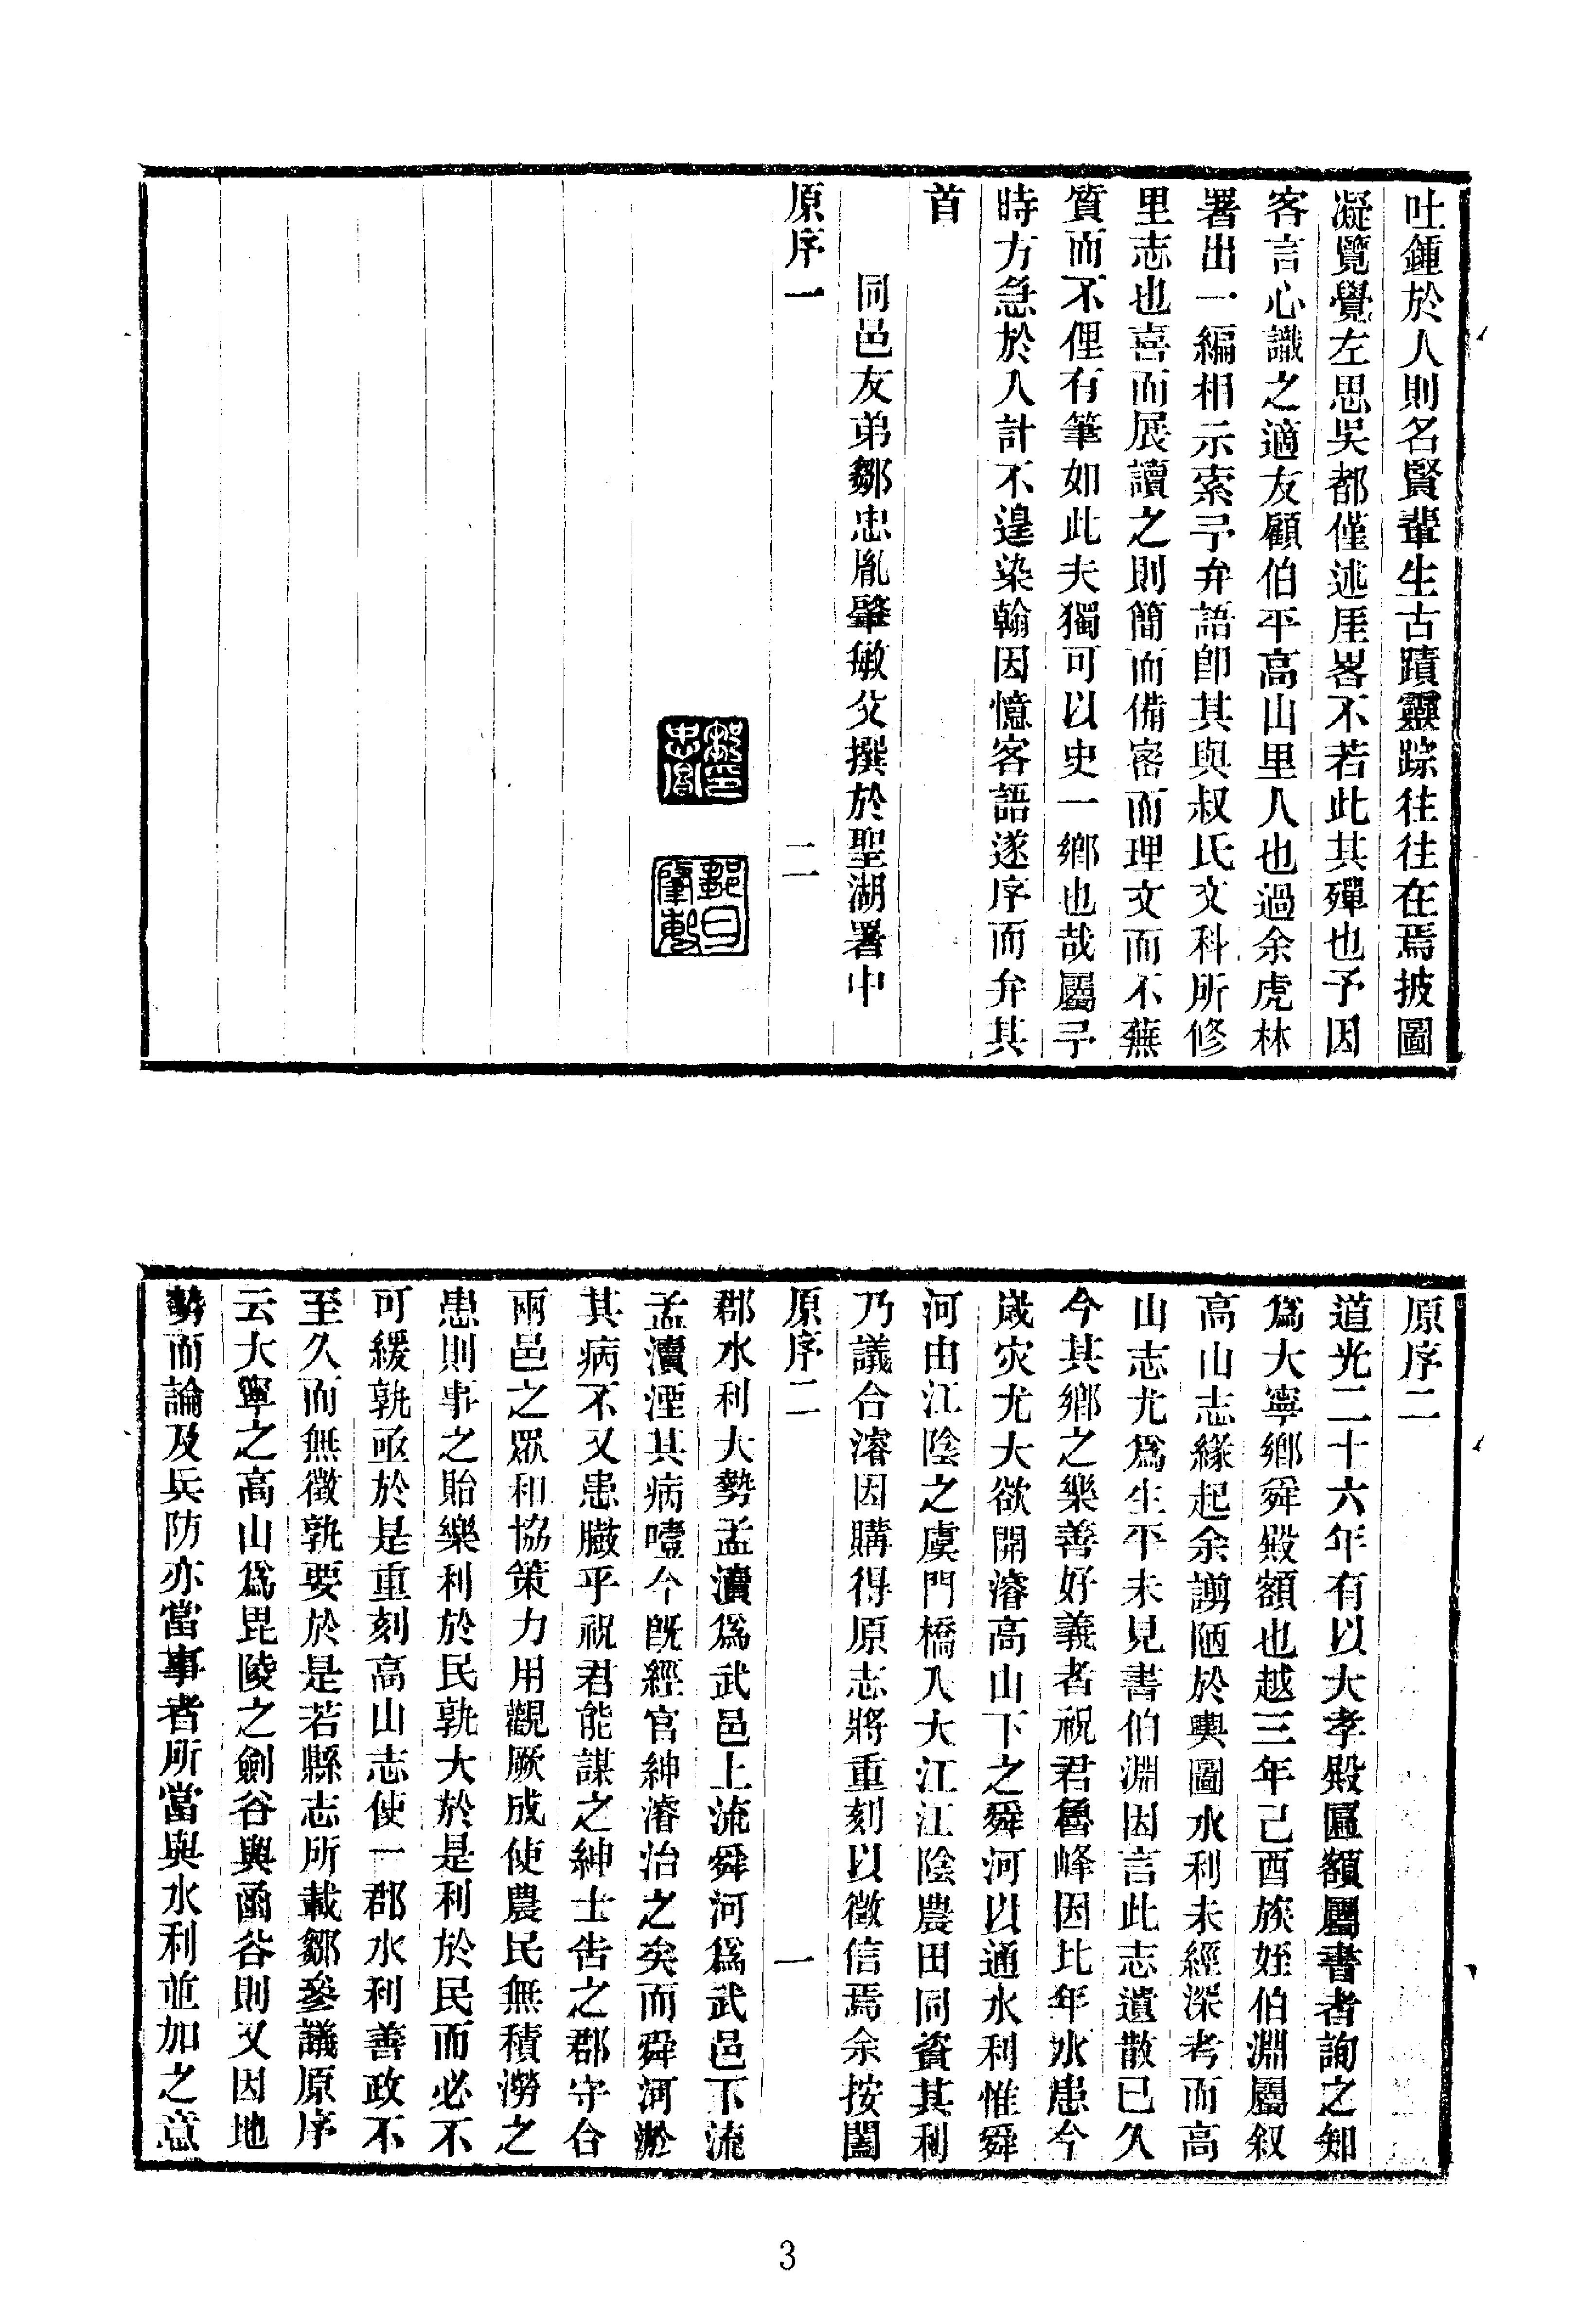 吐鍾於人則名賢輩生古蹟靈踪往往在焉披圖
凝覽覺左思吳都僅述厓畧不若此其殫也予因
客言心識之適友顧伯平高山里人也過余虎林
署出一編相示索予弁語卽其與叔氏文科所修
里志也喜而展讀之則簡而備密而理文而不蕪
質而不俚有筆如此夫獨可以史一鄉也哉屬予
時方急於入計不遑染翰因憶客語遂序而弁其
首
同邑友弟鄒忠胤肇敏父撰於聖湖署中
原序一
二
原序二
道光二十六年有以大孝殿匾額屬書者詢之知
爲大寧鄉舜殿額也越三年己酉族姪伯淵屬叙
高山志緣起余謭陋於輿圖水利未經深考而高
山志尤爲生平未見書伯淵因言此志遺散已久
今其鄉之樂善好義者祝君魯峰因比年水患今
歲灾尤大欲開濬高山下之舜河以通水利惟舜
河由江陰之虞門橋入大江江陰農田同資其利
乃議合濬因購得原志將重刻以徵信焉余按闔
原序二
一
郡水利大勢孟瀆爲武邑上流舜河爲武邑下流
孟瀆湮其病噎今旣經官紳濬治之矣而舜河淤
其病不又患臌乎祝君能謀之紳士吿之郡守合
兩邑之眾和協策力用觀厥成使農民無積澇之
患則事之貽樂利於民孰大於是利於民而必不
可緩孰亟於是重刻高山志使一郡水利善政不
至久而無徵孰要於是若縣志所載鄒參議原序
云大寧之高山爲毘陵之劍谷與函谷則又因地
勢而論及兵防亦當事者所當與水利並加之意
3